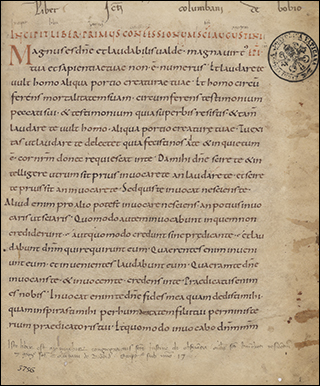 Liber Sci columbani de bobio
INCIPIT LIBER PRIMUS CONFESSIONUM SCI AUGUSTINI
Magnus es dne et laudabilis ualde · magna uirtus
tua et sapientiae tuae non e numerus · Et laudare te
uult homo aliqua portio creaturae tuae · Et homo circu
ferens mortalitatem suam · circumferens testimonium
peccati sui · & testimonium quia superbis resistis · & tam
laudare te uult homo · aliqua portio creaturae tuae · Tu exci
tas ut laudare te delectet quia fecisti nos ad te · & inquietum
e cor nrm donec requiescat in te · Da mihi dne scire te & in
tellegere utrum sit prius inuocare te an laudare te · et scire
te prius sit an inuocare te · Sed quis te inuocat nesciens te ·
Aliud enim pro alio potest inuocare nesciens · an potius inuo
caris ut sciaris · Quomodo autem inuocabunt in quem non
crediderunt · aut quomodo credunt sine predicante · et lau
dabunt dnm qui requirunt eum · Quaerentes enim inueni
unt eum · et inuenientes laudabunt eum · Quaeram te dne
inuocans te · & inuocem te · credens in te · Praedicatus enim
es nobis · Inuocat enim te dne fides mea quam dedisti mihi ·
quam inspirasti mihi per humanitatem filii tui per ministe
rium praedicatoris tui · Et quomodo inuocabo dnm meum
5756